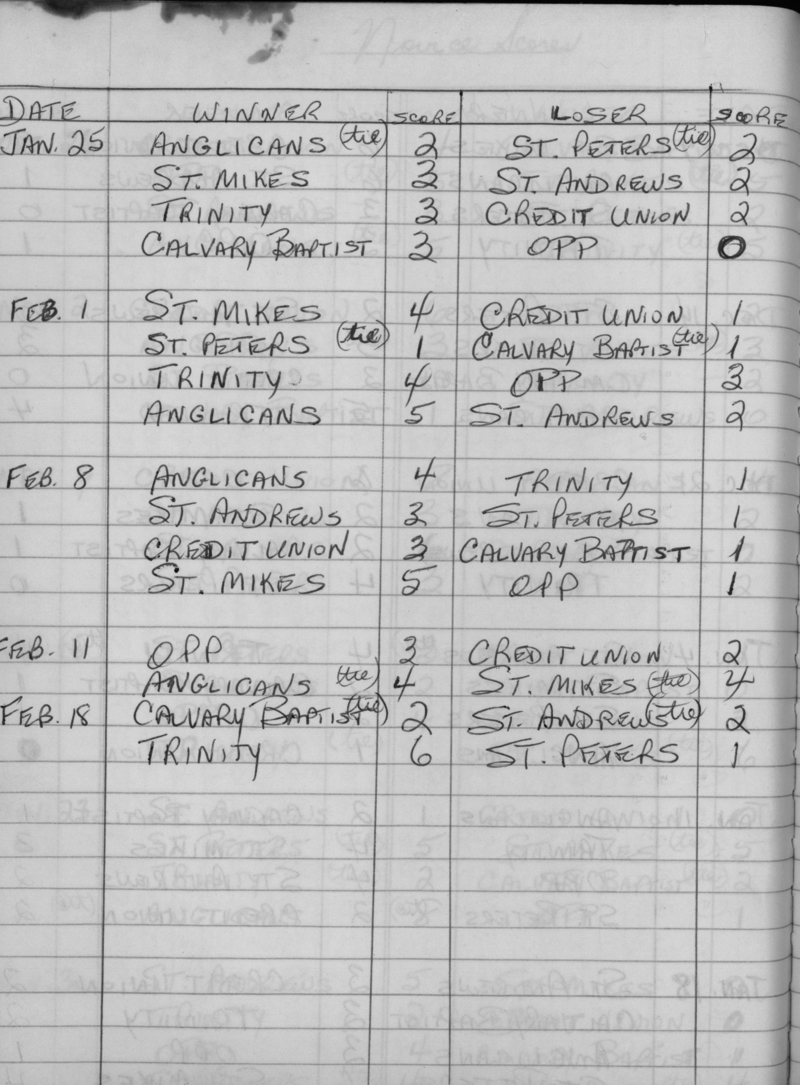 Novice Scores
DATE WINNER SCORE LOSER SCORE
JAN. 25 ANGLICANS (tie) 2 ST. PETERS (tie) 2
ST. MIKES 3 ST. ANDREWS 2
TRINITY 3 CREDIT UNION 2
CALVARY BAPTIST 3 OPP 0
FEB. 1 ST. MIKES 4 CREDIT UNION 1
ST. PETERS (tie) 1 CALVARY BAPTIST (tie) 1
TRINITY 4 OPP 3
ANGLICANS 5 ST. ANDREWS 2
FEB. 8 ANGLICANS 4 TRINITY 1
ST. ANDREWS 3 ST. PETERS 1
CREDIT UNION 3 CALVARY BAPTIST 1
ST. MIKES 5 OPP 1
FEB. 11 OPP 3 CREDIT UNION 2
ANGLICANS (tie) 4 ST. MIKES (tie) 4
FEB. 18 CALVARY BAPTIST (tie) 2 ST. ANDREWS (tie) 2
TRINITY 6 ST. PETERS 1